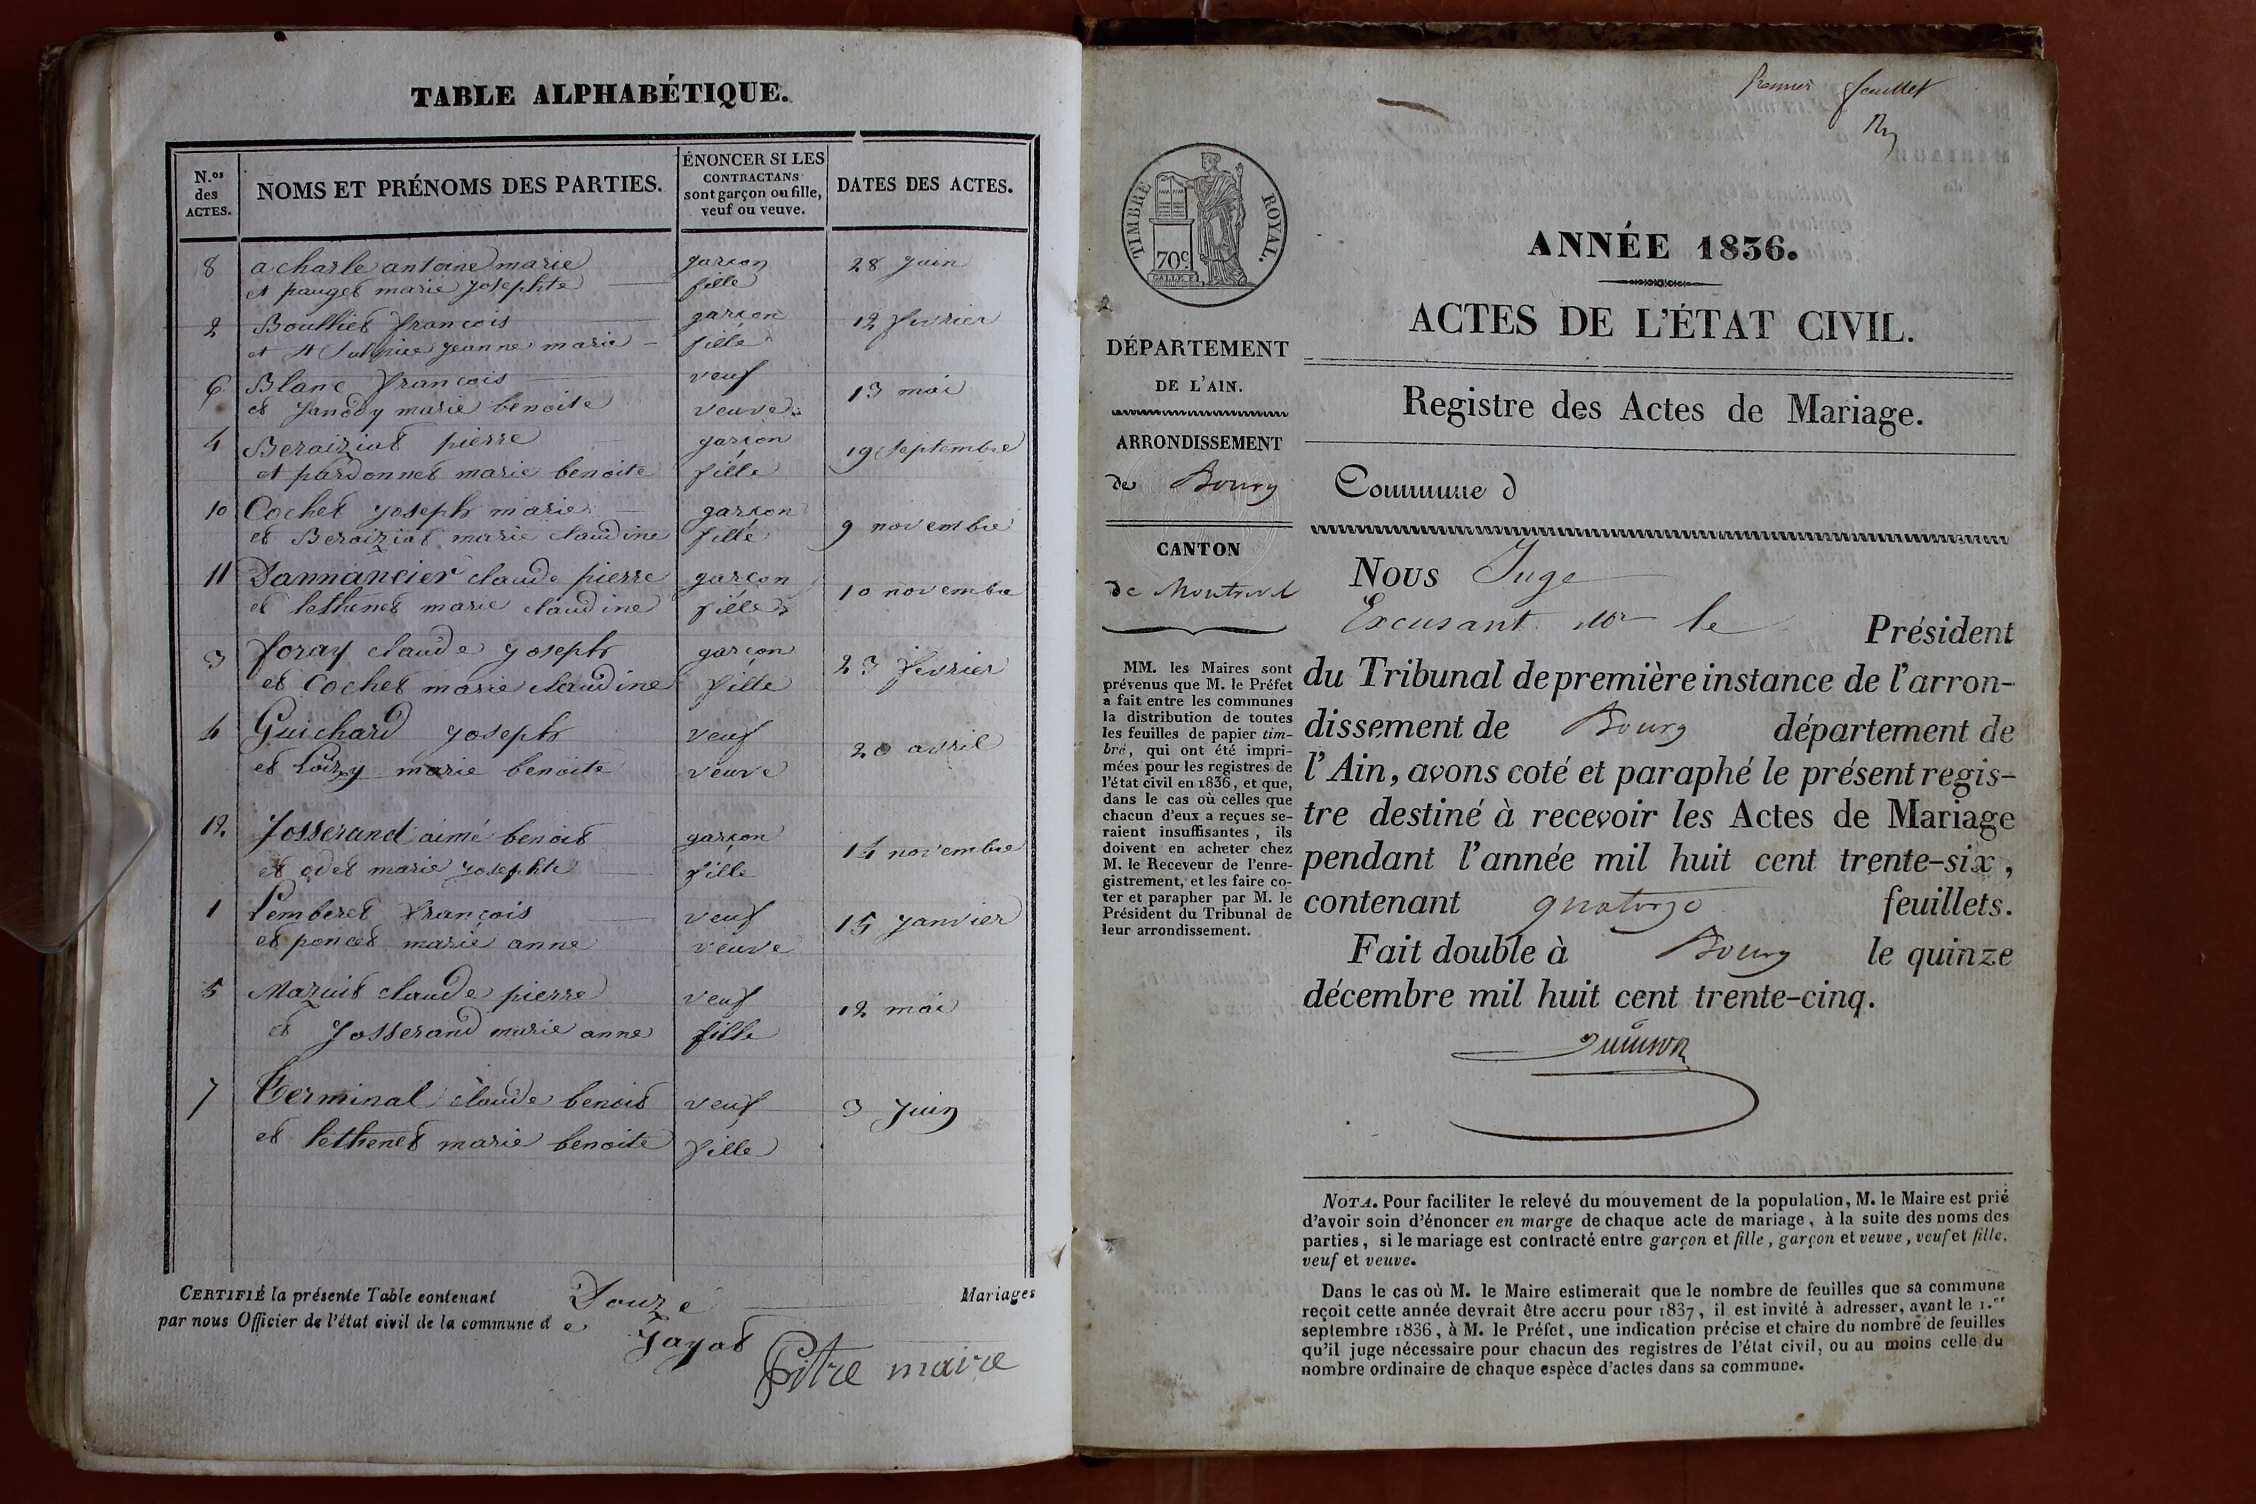 TABLE ALPHABÉTIQUE.
N.os des ACTES.
NOMS ET PRÉNOMS DES PARTIES.
ÉNONCER SI LES
CONTRACTANS
sont garçon ou fille,
veuf ou veuve.
DATES DES ACTES.
8 acharle antoine marie garcon 28 juin
et pauget marie josephte fille
2 Bouthier francois garcon 12 fevrier
et St Sulpice jeanne marie fille
6 Blanc francois veuf 13 mai
et janody marie benoite veuve
4 Beraiziat pierre garçon 19 septembre
et pardonnet marie benoite fille
10 Cochet joseph marie garçon 9 novembre
et Beraiziat marie claudine fille
11 Dannancier claude pierre garçon 10 novembre
et pethenet marie claudine fille
3 foray claude joseph garcon 23 fevrier
et Cochet marie claudine fille
4 Guichard joseph veuf 20 avril
et marie benoite veuve
12. Josserand aimé benoit garçon 14 novembre
et odet marie josephte fille
1 Pemberet françois veuf 15 janvier
et poncet marie anne veuve
5 Mazuit claude pierre veuf 12 mai
et Josserand marie anne fille
7 Terminal claude benoit veuf 3 juin
et pethenet marie benoite fille
CERTIFIÉ la présente Table contenant Douze Mariages
par nous Officier de l'état civil de la commune d e Jayat
Pitre maire
Premier feuillet
TIMBRE ROYAL.
70c.
DÉPARTEMENT
DE L'AIN.
ARRONDISSEMENT
de Bourg
CANTON
de Montrevel
MM. les Maires sont
prévenus que M. le Préfet
a fait entre les communes
la distribution de toutes
les feuilles de papier tim-
bré, qui ont été impri-
mées pour les registres de
l'état civil en 1836, et que,
dans le cas où celles que
chacun d'eux a reçues se-
raient insuffisantes, ils
doivent en acheter chez
M. le Receveur de l'enre-
gistrement, et les faire co-
ter et parapher par M. le
Président du Tribunal de
leur arrondissement.
ANNÉE 1836.
ACTES DE L'ÉTAT CIVIL.
Registre des Actes de Mariage.
Commune d
Nous Juge
Excusant Mr le Président
du Tribunal de première instance de l'arron-
dissement de Bourg département de
l'Ain, avons coté et paraphé le présent regis-
tre destiné à recevoir les Actes de Mariage
pendant l'année mil huit cent trente-six,
contenant quatorze feuillets.
Fait double à Bourg le quinze
décembre mil huit cent trente-cinq.
NOTA. Pour faciliter le relevé du mouvement de la population, M. le Maire est prié
d'avoir soin d'énoncer en marge de chaque acte de mariage, à la suite des noms des
parties, si le mariage est contracté entre garçon et fille, garçon et veuve, veuf et fille,
veuf et veuve.
Dans le cas où M. le Maire estimerait que le nombre de feuilles que sa commune
reçoit cette année devrait être accru pour 1837, il est invité à adresser, avant le 1.er
septembre 1836, à M. le Préfet, une indication précise et claire du nombre de feuilles
qu'il juge nécessaire pour chacun des registres de l'état civil, ou au moins celle du
nombre ordinaire de chaque espèce d'actes dans sa commune.